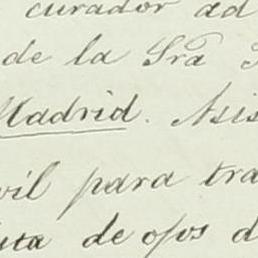 curador ad
de la Sra
Madrid. Asis
vil para tra
uta de ojos d